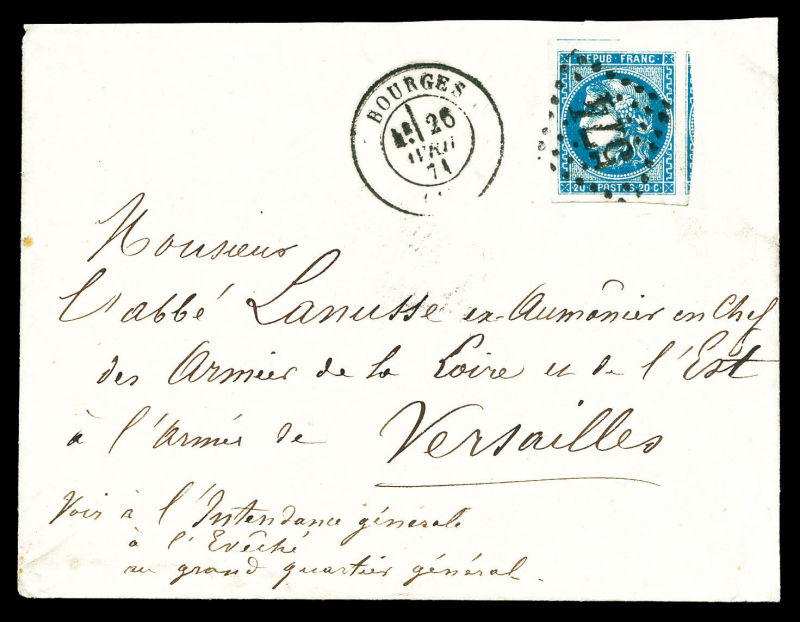 BOURGES
26
AVRIL
71
REPUB · FRANC ·
20 C POSTES 20 C
Monsieur
l'abbé Lanusse ex-Aumônier en Chef
des Armées de la Loire et de l'Est
à l'Armée de Versailles
Voir à l'Intendance générale
à l'Evêché
au grand quartier général.